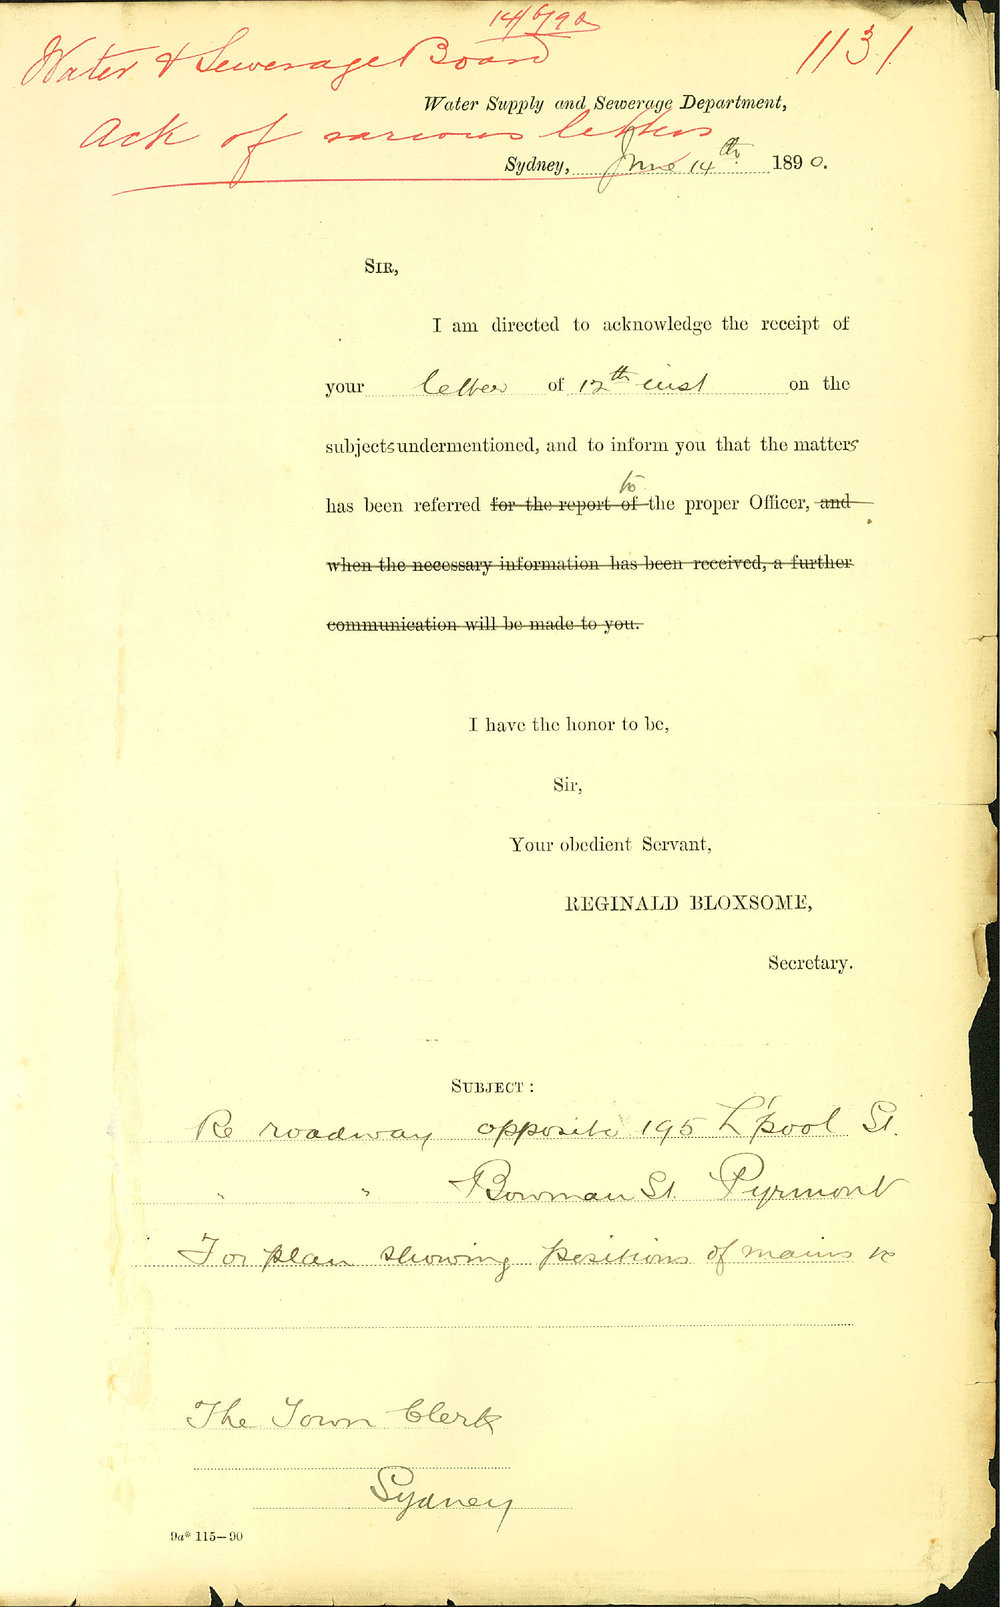 14/6/90
Water & Sewerage Board
1131
Water Supply and Sewerage Department,
Ack of various letters
Sydney, June 14th 1890.
SIR,
I am directed to acknowledge the receipt of
your letter of 12th inst on the
subjects undermentioned, and to inform you that the matters
to
has been referred for the report of the proper Officer, and
when the necessary information has been received, a further
communication will be made to you.
I have the honor to be,
Sir,
Your obedient Servant,
REGINALD BLOXSOME,
Secretary.
SUBJECT :
Re roadway opposite 195 L'pool St.
" " Bowman St. Pyrmont
For plan showing positions of mains &c
The Town Clerk
Sydney
9a* 115—90